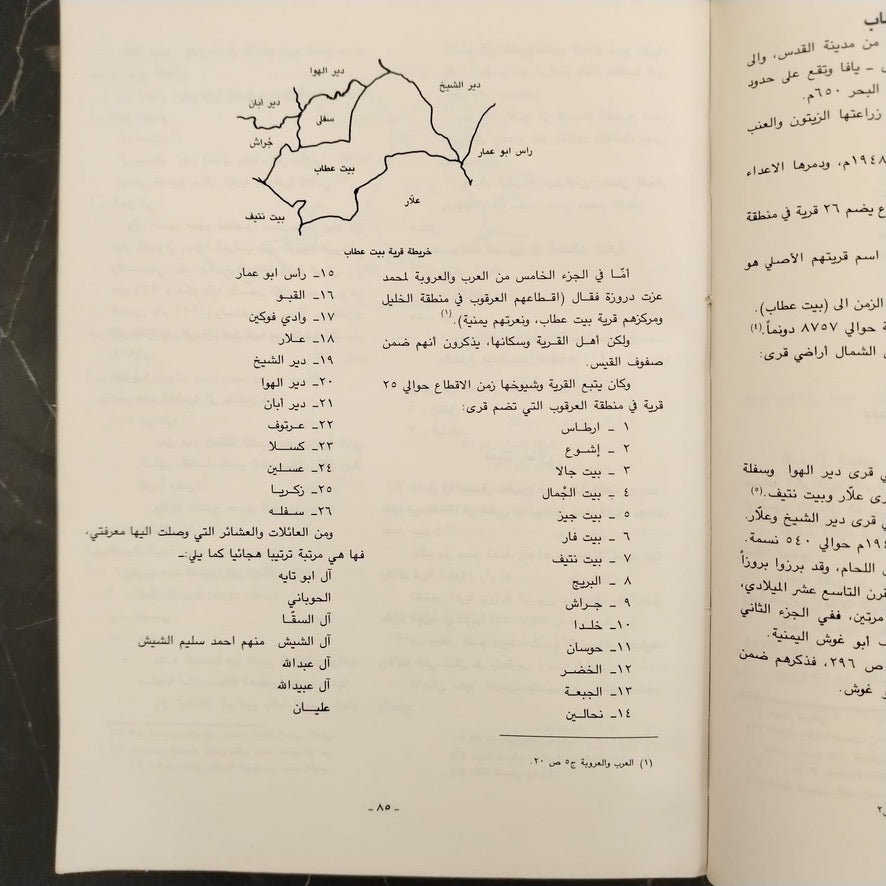 طاب
من مدينة القدس، والى
ـ يافا وتقع على حدود
البحر ٦٥٠م.
زراعتها الزيتون والعنب
١٩٤٨م، ودمرها الاعداء
يضم ٢٦ قرية في منطقة
اسم قريتهم الأصلي هو
الزمن الى (بيت عطاب).
حوالي ٨٧٥٧ دونماً.(٤)
الشمال أراضي قرى:
قرى دير الهوا وسفلة
علّار وبيت نتيف.(٥)
قرى دير الشيخ وعلّار.
حوالي ٥٤٠ نسمة.
اللحام، وقد برزوا بروزاً
التاسع عشر الميلادي،
مرتين، ففي الجزء الثاني
أبو غوش اليمنية.
ص ٢٩٦، فذكرهم ضمن
غوش.
دير الهوا
دير الشيخ
دير أبان
سفلى
جراش
راس ابو عمار
بيت عطاب
علّار
بيت نتيف
خريطة قرية بيت عطاب
أمّا في الجزء الخامس من العرب والعروبة لمحمد
عزت دروزة فقال (اقطاعهم العرقوب في منطقة الخليل
ومركزهم قرية بيت عطاب، ونعرتهم يمنية).(١)
ولكن أهل القرية وسكانها، يذكرون أنهم ضمن
صفوف القيس.
وكان يتبع القرية وشيوخها زمن الاقطاع حوالي ٢٥
قرية في منطقة العرقوب التي تضم قرى:
١ ـ ارطاس
٢ ـ إشوع
٣ ـ بيت جالا
٤ ـ بيت الجْمال
٥ ـ بيت جيز
٦ ـ بيت فار
٧ ـ بيت نتيف
٨ ـ البريج
٩ ـ جراش
١٠ـ خلدا
١١ـ حوسان
١٢ـ الخضر
١٣ـ الجبعة
١٤ـ نحالين
١٥ـ رأس ابو عمار
١٦ـ القبو
١٧ـ وادي فوكين
١٨ـ علار
١٩ـ دير الشيخ
٢٠ـ دير الهوا
٢١ـ دير أبان
٢٢ـ عرتوف
٢٣ـ كسلا
٢٤ـ عسلين
٢٥ـ زكريا
٢٦ـ سفله
ومن العائلات والعشائر التي وصلت اليها معرفتي،
فها هي مرتبة ترتيبا هجائيا كما يلي:ـ
آل ابو تايه
الحوباني
آل السقّا
آل الشيش منهم احمد سليم الشيش
آل عبدالله
آل عبيدالله
عليان
(١) العرب والعروبة ج٥ ص ٢٠.
ـ ٨٥ ـ